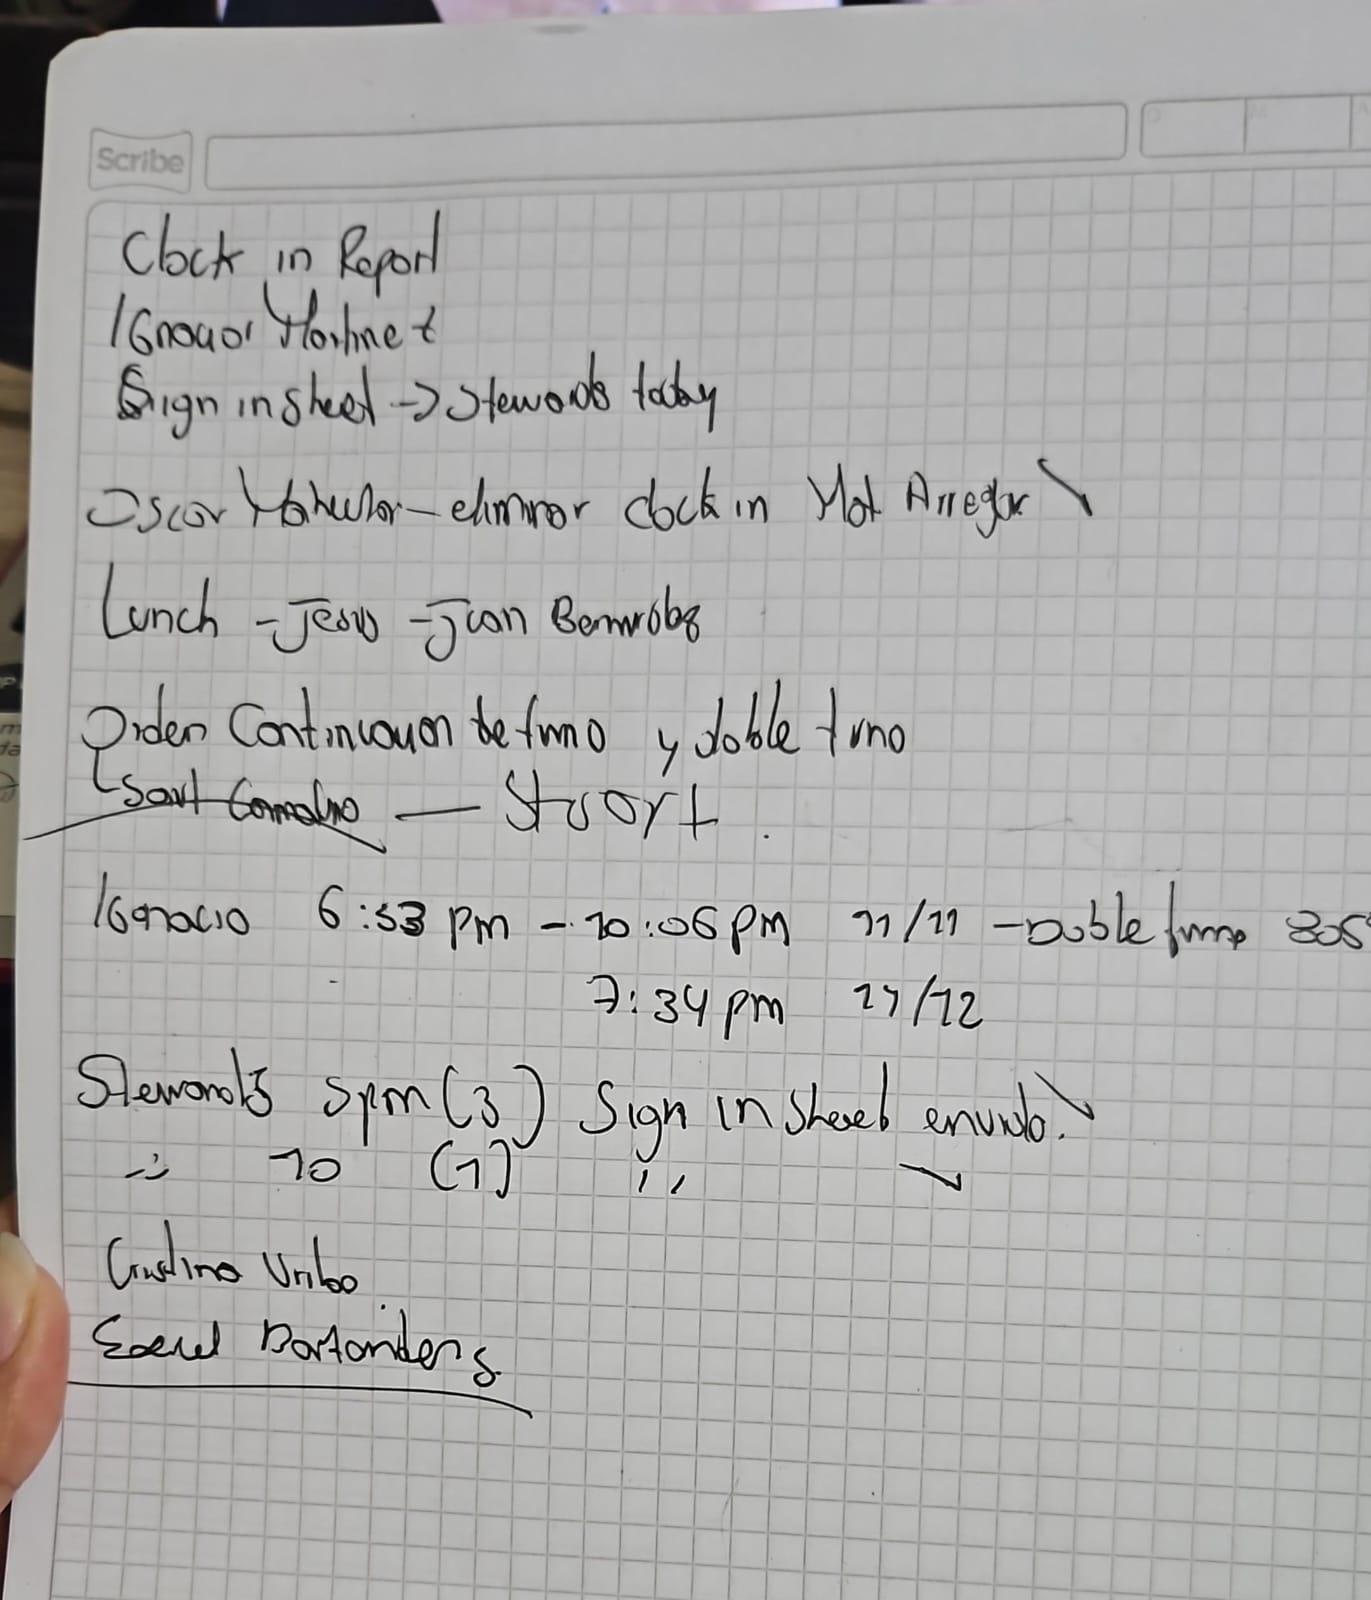 Scribe
Clock in Report
Ignacio Martinez
Sign in sheet -> Stewards today
Oscar - eliminar clock in Mat Arreglar
Lunch - Jesus - Juan
Orden Continuacion de turno y doble turno
— Stuart.
Ignacio 6:53 pm - 10:06 pm 11/11 - Doble turno
7:34 pm 11/12
Stewards 5pm (3) Sign in sheet enviado.
" 10 (1) "
Cristina Uribe
Excel Bartenders